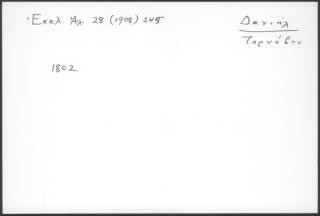 Ἐκκλ. Ἀλ. 28 (1908) 245
Δανιήλ
Τορνόβου
1802